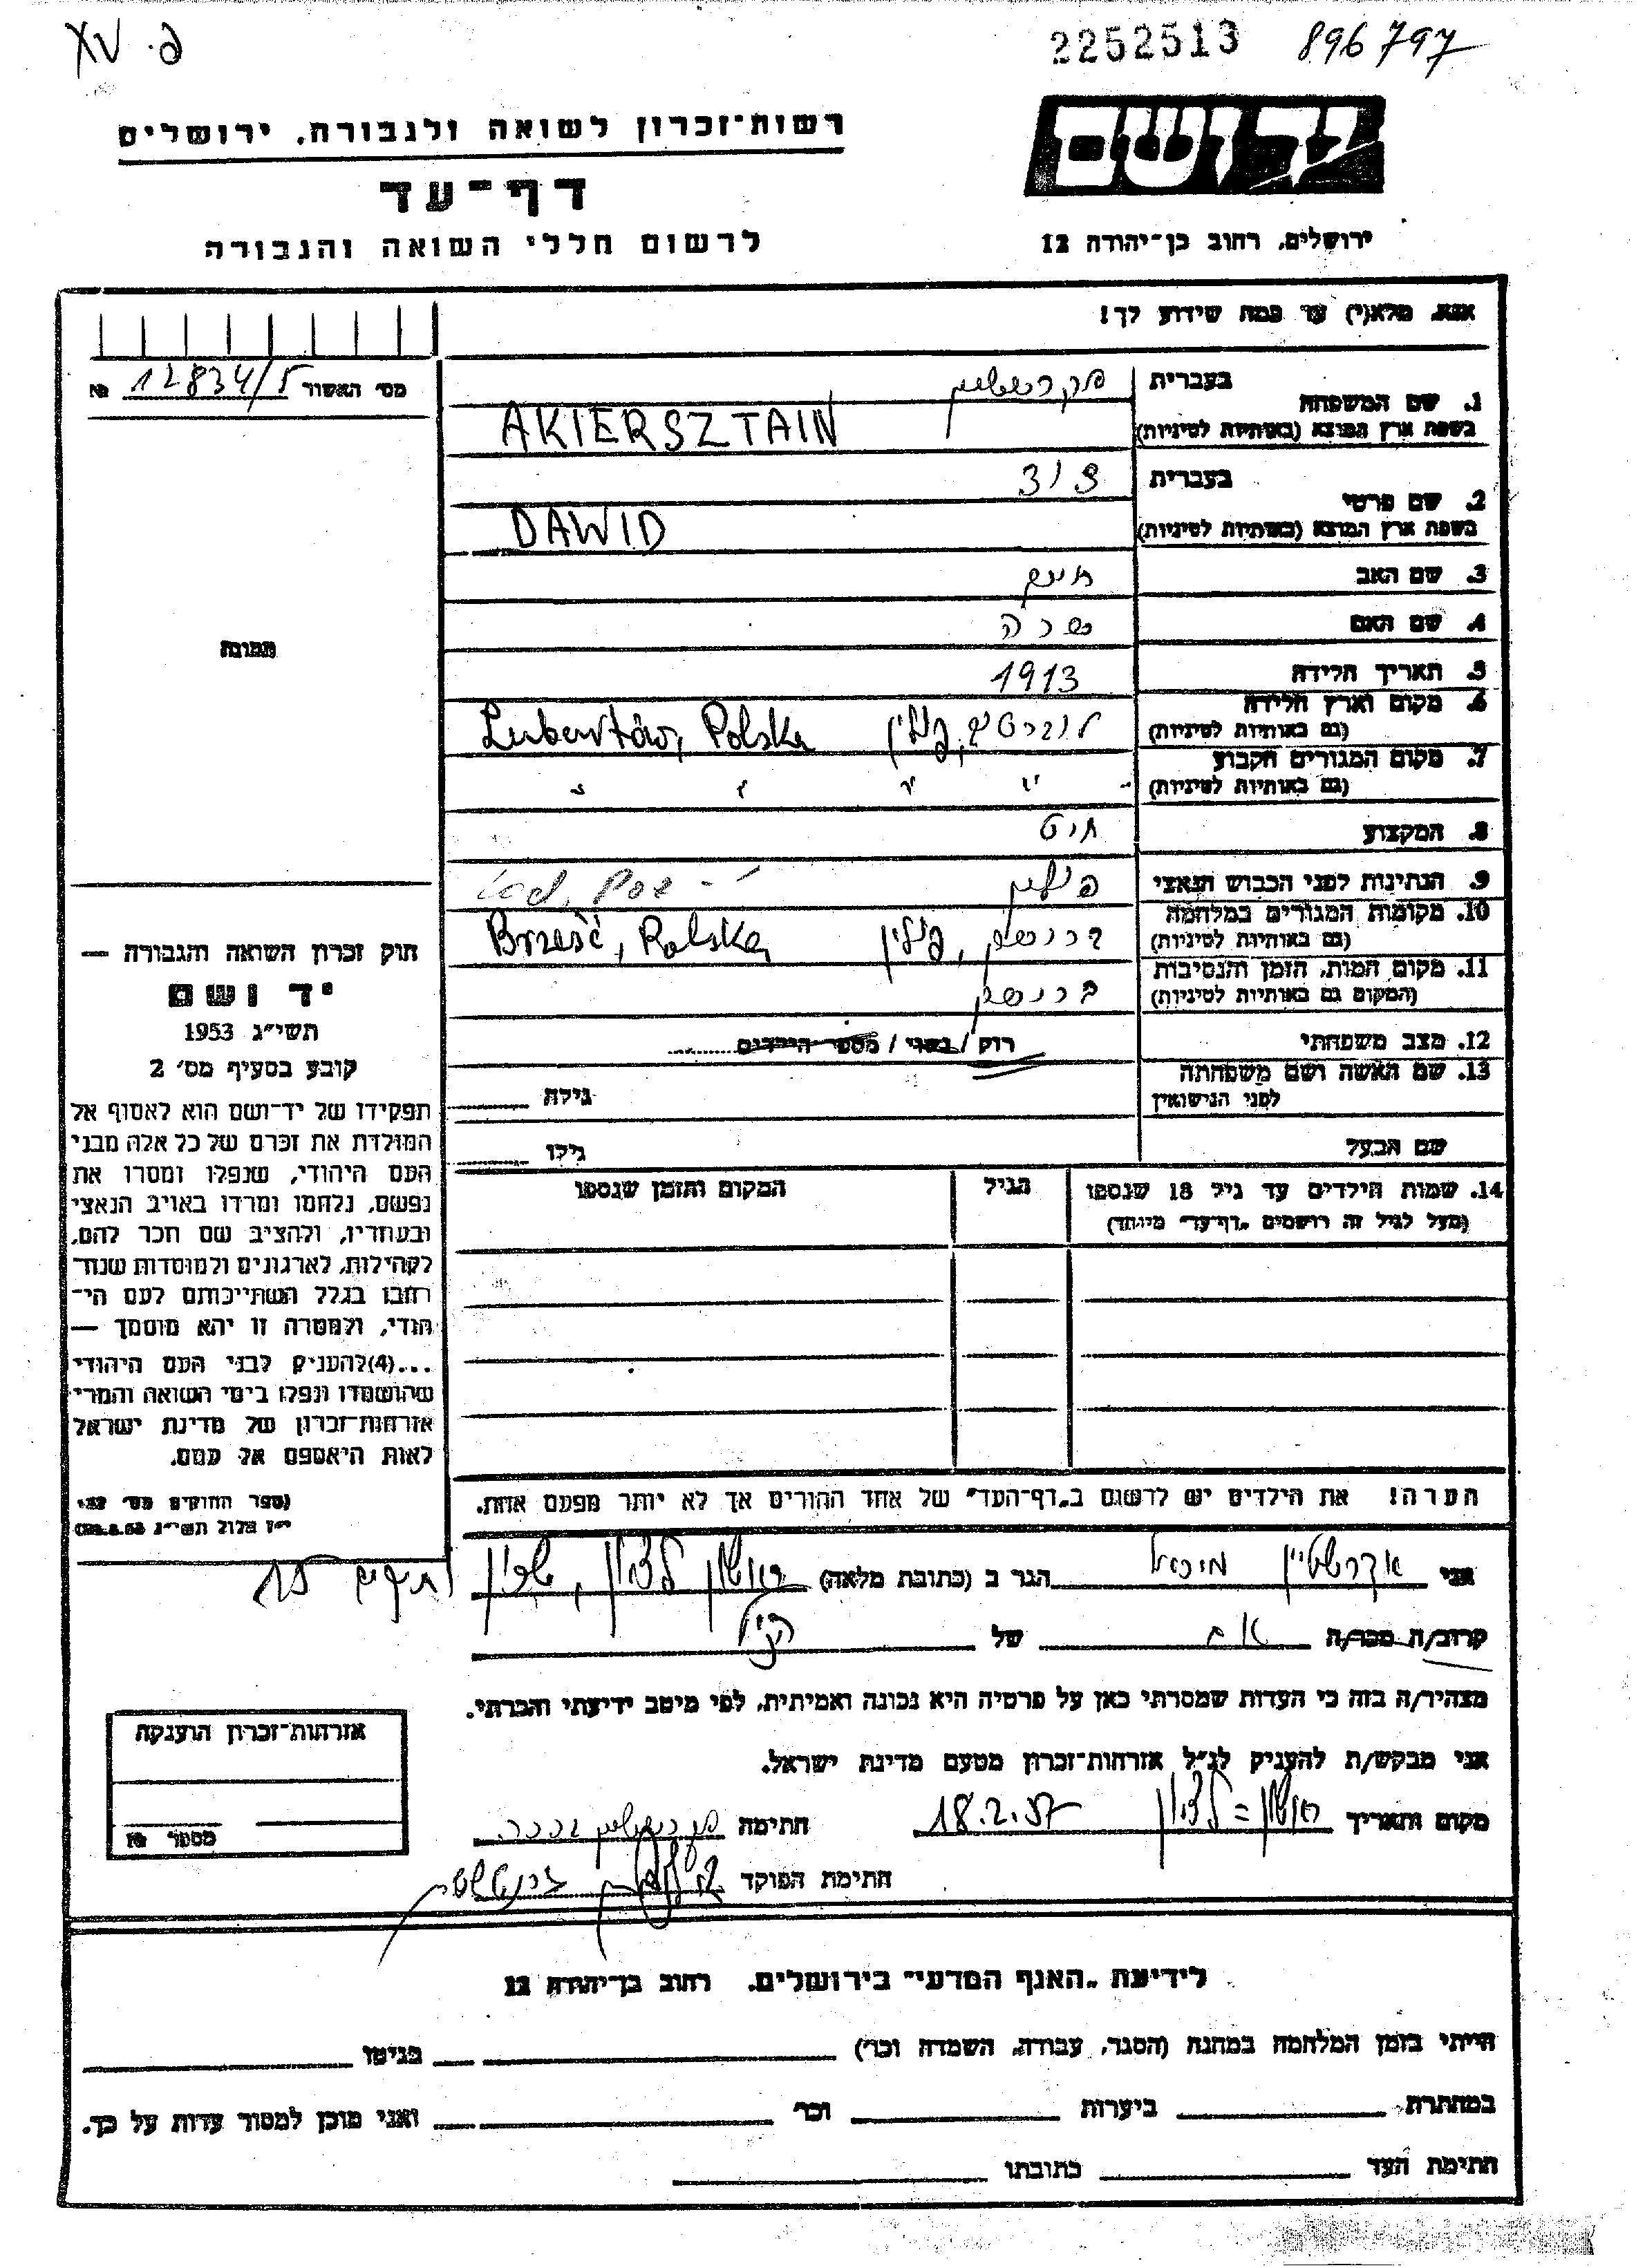 פ. XV
2252513 896797
יד ושם
רשות־זכרון לשואה ולגבורה, ירושלים
דף־עד
לרשום חללי השואה והגבורה
ירושלים, רחוב בן־יהודה 12
אנא, מלא(י) עד כמה שידוע לך!
מס׳ האשור 12834/5 №
1. שם המשפחה
בעברית אקרשטיין
בשפת ארץ המוצא (באותיות לטיניות) AKIERSZTAIN
2. שם פרטי
בעברית דוד
בשפת ארץ המוצא (באותיות לטיניות) DAWID
3. שם האב
4. שם האם שרה
5. תאריך הלידה 1913
6. מקום וארץ הלידה
(גם באותיות לטיניות) לוברטוב, פולין Lubartów, Polska
7. מקום המגורים הקבוע
(גם באותיות לטיניות) " " " " "
8. המקצוע חיט
9. הנתינות לפני הכבוש הנאצי פולין
10. מקומות המגורים במלחמה
(גם באותיות לטיניות) פולין Brześć, Polska
11. מקום המות, הזמן והנסיבות
(המקום גם באותיות לטיניות)
12. מצב משפחתי רוק / נשוי / מספר הילדים
13. שם האשה ושם משפחתה
לפני הנישואין גילה
שם הבעל גילו
14. שמות הילדים עד גיל 18 שנספו
(מעל לגיל זה רושמים „דף־עד" מיוחד)
הגיל
המקום והזמן שנספו
הערה! את הילדים יש לרשום ב„דף־העד" של אחד ההורים אך לא יותר מפעם אחת.
תמונה
חוק זכרון השואה והגבורה —
יד ושם
תשי״ג 1953
קובע בסעיף מס׳ 2
תפקידו של יד־ושם הוא לאסוף אל
המולדת את זכרם של כל אלה מבני
העם היהודי, שנפלו ומסרו את
נפשם, נלחמו ומרדו באויב הנאצי
ובעוזריו, ולהציב שם וזכר להם,
לקהילות, לארגונים ולמוסדות שנח־
רבו בגלל השתייכותם לעם הי־
הודי, ולמטרה זו יהא מוסמך —
...(4) להעניק לבני העם היהודי
שהושמדו ונפלו בימי השואה והמרי
אזרחות־זכרון של מדינת ישראל
לאות היאספם אל עמם.
(ספר החוקים מס׳ 132,
י״ז אלול תשי״ג 28.8.53)
אני אקרשטיין מיכאל הגר ב (כתובת מלאה) ראשון לציון, שכון ותיקים 15
קרוב/ה מכר/ה אח של הנ״ל
מצהיר/ה בזה כי העדות שמסרתי כאן על פרטיה היא נכונה ואמיתית, לפי מיטב ידיעתי והכרתי.
אני מבקש/ת להעניק לנ״ל אזרחות־זכרון מטעם מדינת ישראל.
מקום ותאריך ראשון = לציון 18.2.57 חתימה אקרשטיין
חתימת הפוקד
אזרחות־זכרון הוענקה
מספר №
לידיעת „האגף המדעי" בירושלים, רחוב בן־יהודה 12
הייתי בזמן המלחמה במחנה (הסגר, עבודה, השמדה וכו׳) בגיטו
במחתרת ביערות וכו׳ ואני מוכן למסור עדות על כך.
חתימת העד כתובתו